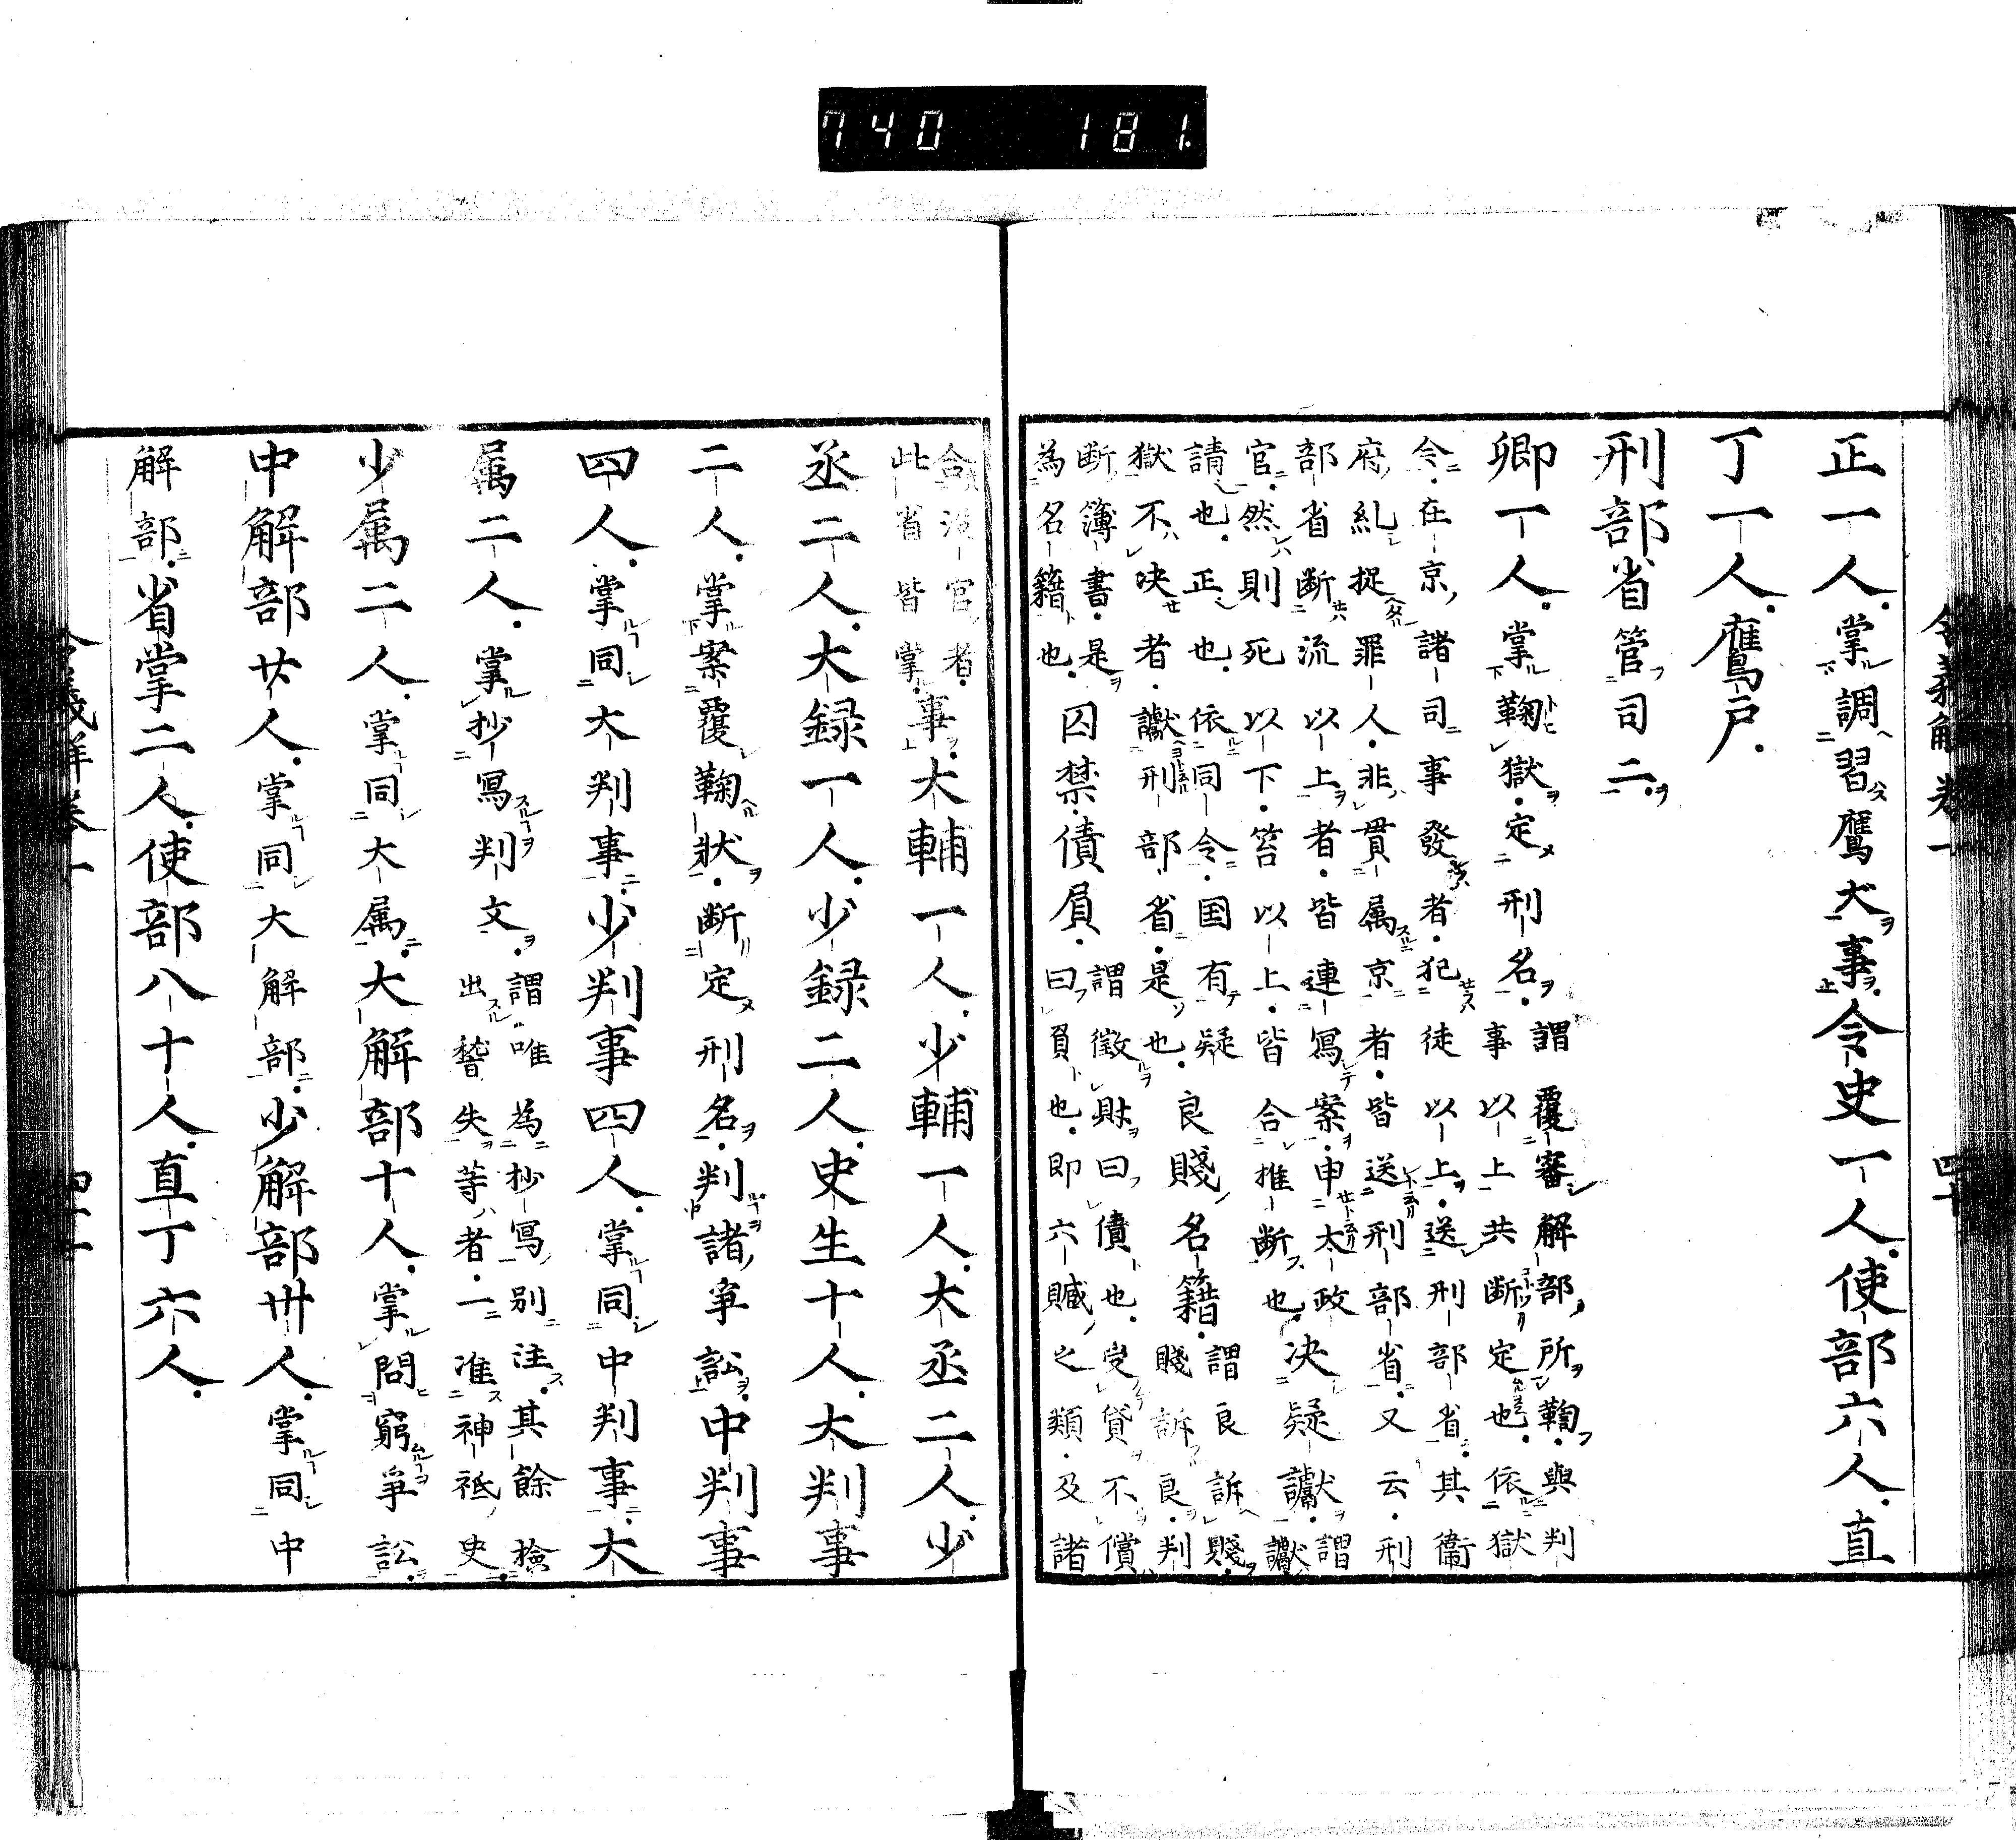 740 181.
令義解巻一 四十
正一人。掌調習鷹犬事。令史一人。使部六人。直
丁一人。鷹戸。
刑部省管司二。
卿一人。掌鞫獄。定刑名。謂覆審解部所鞫。與判
事以上共断定也。依獄
令。在京諸司事發者。犯徒以上。送刑部省。其衞
府糺捉罪人。非貫属京者。皆送刑部省。又云。刑
部省断流以上者。皆連寫案。申太政
官。然則死以下。笞以上。皆合推断也。決疑讞。謂
讞
請也。正也。依同令。国有疑
獄不决者。讞刑部省。是也。良賤名籍。謂良訴賤。
賤訴良。判
断簿書。是
為名籍也。囚禁。債負。謂徴財曰債也。受貸不償
曰負也。即六贓之類。及諸
合法官者。
此省皆掌。事。大輔一人。少輔一人。大丞二人。少
丞二人。大録一人。少録二人。史生十人。大判事
二人。掌案覆鞫状。断定刑名。判諸爭訟。中判事
四人。掌同大判事。少判事四人。掌同中判事。大
属二人。掌抄寫判文。謂。唯為抄寫。別注。其餘捡
出稽失等者。一准神祇史。
少属二人。掌同大属。大解部十人。掌問窮爭訟。
中解部廿人。掌同大解部。少解部卅人。掌同中
解部。省掌二人。使部八十人。直丁六人。
令義解巻一 四十一